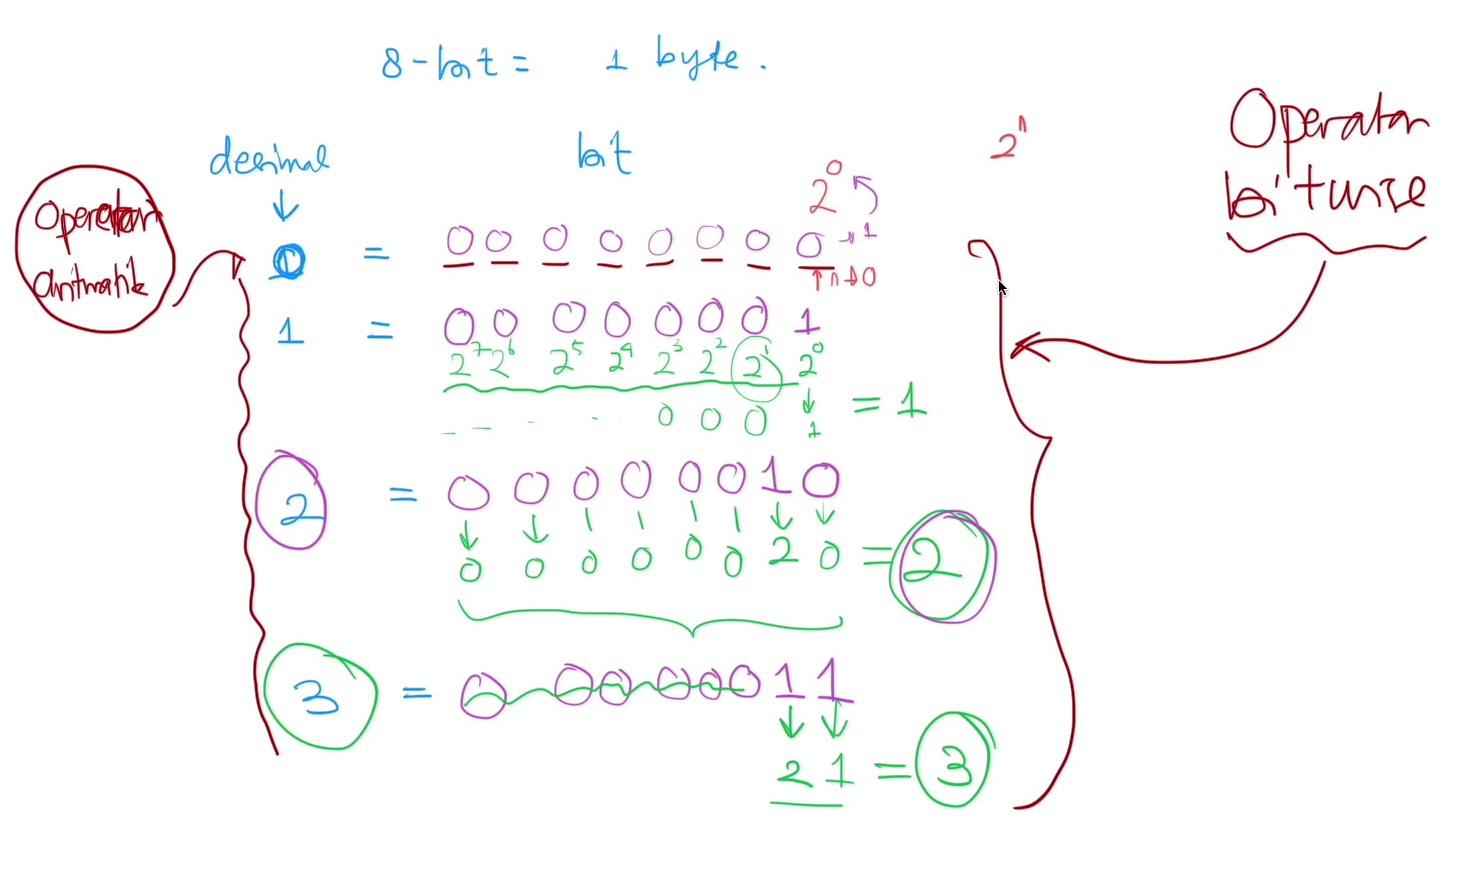 8-bit = 1 byte.
Operator
bitwise
2ⁿ
desimal
bit
Operator
Aritmatik
2⁰
0 = 0 0 0 0 0 0 0 0 → 1
↑ n → 0
1 = 0 0 0 0 0 0 0 1
2⁷ 2⁶ 2⁵ 2⁴ 2³ 2² 2¹ 2⁰
0 0 0 1 = 1
2 = 0 0 0 0 0 0 1 0
0 0 0 0 0 0 2 0 = 2
3 = 0 0 0 0 0 0 1 1
2 1 = 3